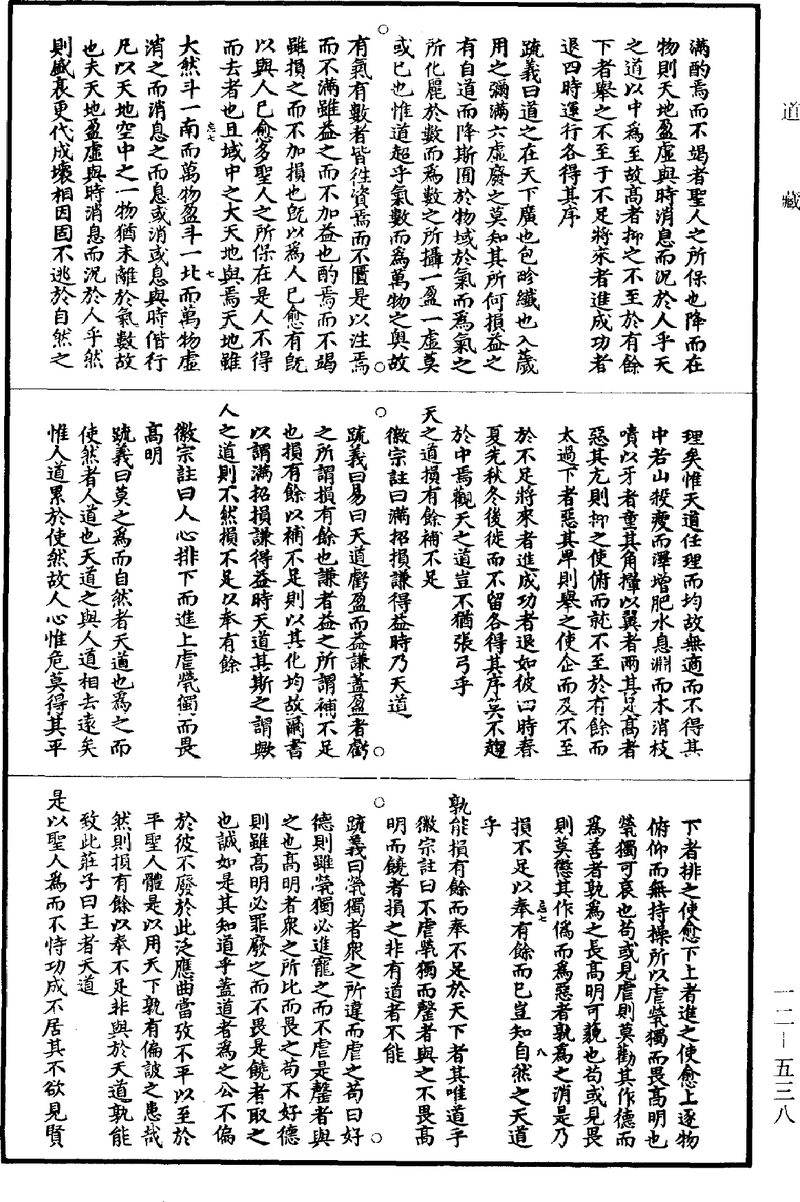 道藏
滿酌焉而不竭者聖人之所保也降而在
物則天地盈虛與時消息而況於人乎天
之道以中為至故高者抑之不至於有餘
下者舉之不至于不足將來者進成功者
退四時運行各得其序
疏義曰道之在天下廣也包畛纖也入薉
用之彌滿六虛廢之莫知其所何損益之
有自道而降斯囿於物域於氣而為氣之
所化麗於數而為數之所攝一盈一虛莫
或已也惟道超乎氣數而為萬物之奧故
有氣有數者皆往資焉而不匱是以注焉
而不滿雖益之而不加益也酌焉而不竭
雖損之而不加損也既以為人已愈有既
以與人已愈多聖人之所保在是人不得
而去者也且域中之大天地與焉天地雖
大然斗一南而萬物盈斗一北而萬物虛
消之而消息之而息或消或息與時偕行
凡以天地空中之一物猶未離於氣數故
也夫天地盈虛與時消息而況於人乎然
則盛衰更代成壞相因固不逃於自然之
理矣惟天道任理而均故無適而不得其
中若山殺瘦而澤增肥水息淵而木消枝
噴以牙者童其角攫以翼者兩其足高者
惡其亢則抑之使俯而就不至於有餘而
太過下者惡其卑則舉之使企而及不至
於不足將來者進成功者退如彼四時春
夏先秋冬後徙而不留各得其序莫不趨
於中焉觀天之道豈不猶張弓乎
天之道損有餘補不足
徽宗註曰滿招損謙得益時乃天道
疏義曰易曰天道虧盈而益謙蓋盈者虧
之所謂損有餘也謙者益之所謂補不足
也損有餘以補不足則以其化均故爾書
以謂滿招損謙得益時天道其斯之謂歟
人之道則不然損不足以奉有餘
徽宗註曰人心排下而進上虐煢獨而畏
高明
疏義曰莫之為而自然者天道也為之而
使然者人道也天道之與人道相去遠矣
惟人道累於使然故人心惟危莫得其平
下者排之使愈下上者進之使愈上逐物
俯仰而無持操所以虐煢獨而畏高明也
煢獨可哀也苟或見虐則莫勸其作德而
為善者孰為之長高明可藐也苟或見畏
則莫懲其作偽而為惡者孰為之消是乃
損不足以奉有餘而已豈知自然之天道
乎
孰能損有餘而奉不足於天下者其唯道乎
徽宗註曰不虐煢獨而罄者與之不畏高
明而饒者損之非有道者不能
疏義曰煢獨者衆之所違而虐之苟曰好
德則雖煢獨必進寵之而不虐是罄者與
之也高明者衆之所比而畏之苟不好德
則雖高明必罪廢之而不畏是饒者取之
也誠如是其知道乎蓋道者為之公不偏
於彼不廢於此泛應曲當攷不平以至於
平聖人體是以用天下孰有偏詖之患哉
然則損有餘以奉不足非與於天道孰能
致此莊子曰主者天道
是以聖人為而不恃功成不居其不欲見賢
一二－五三八